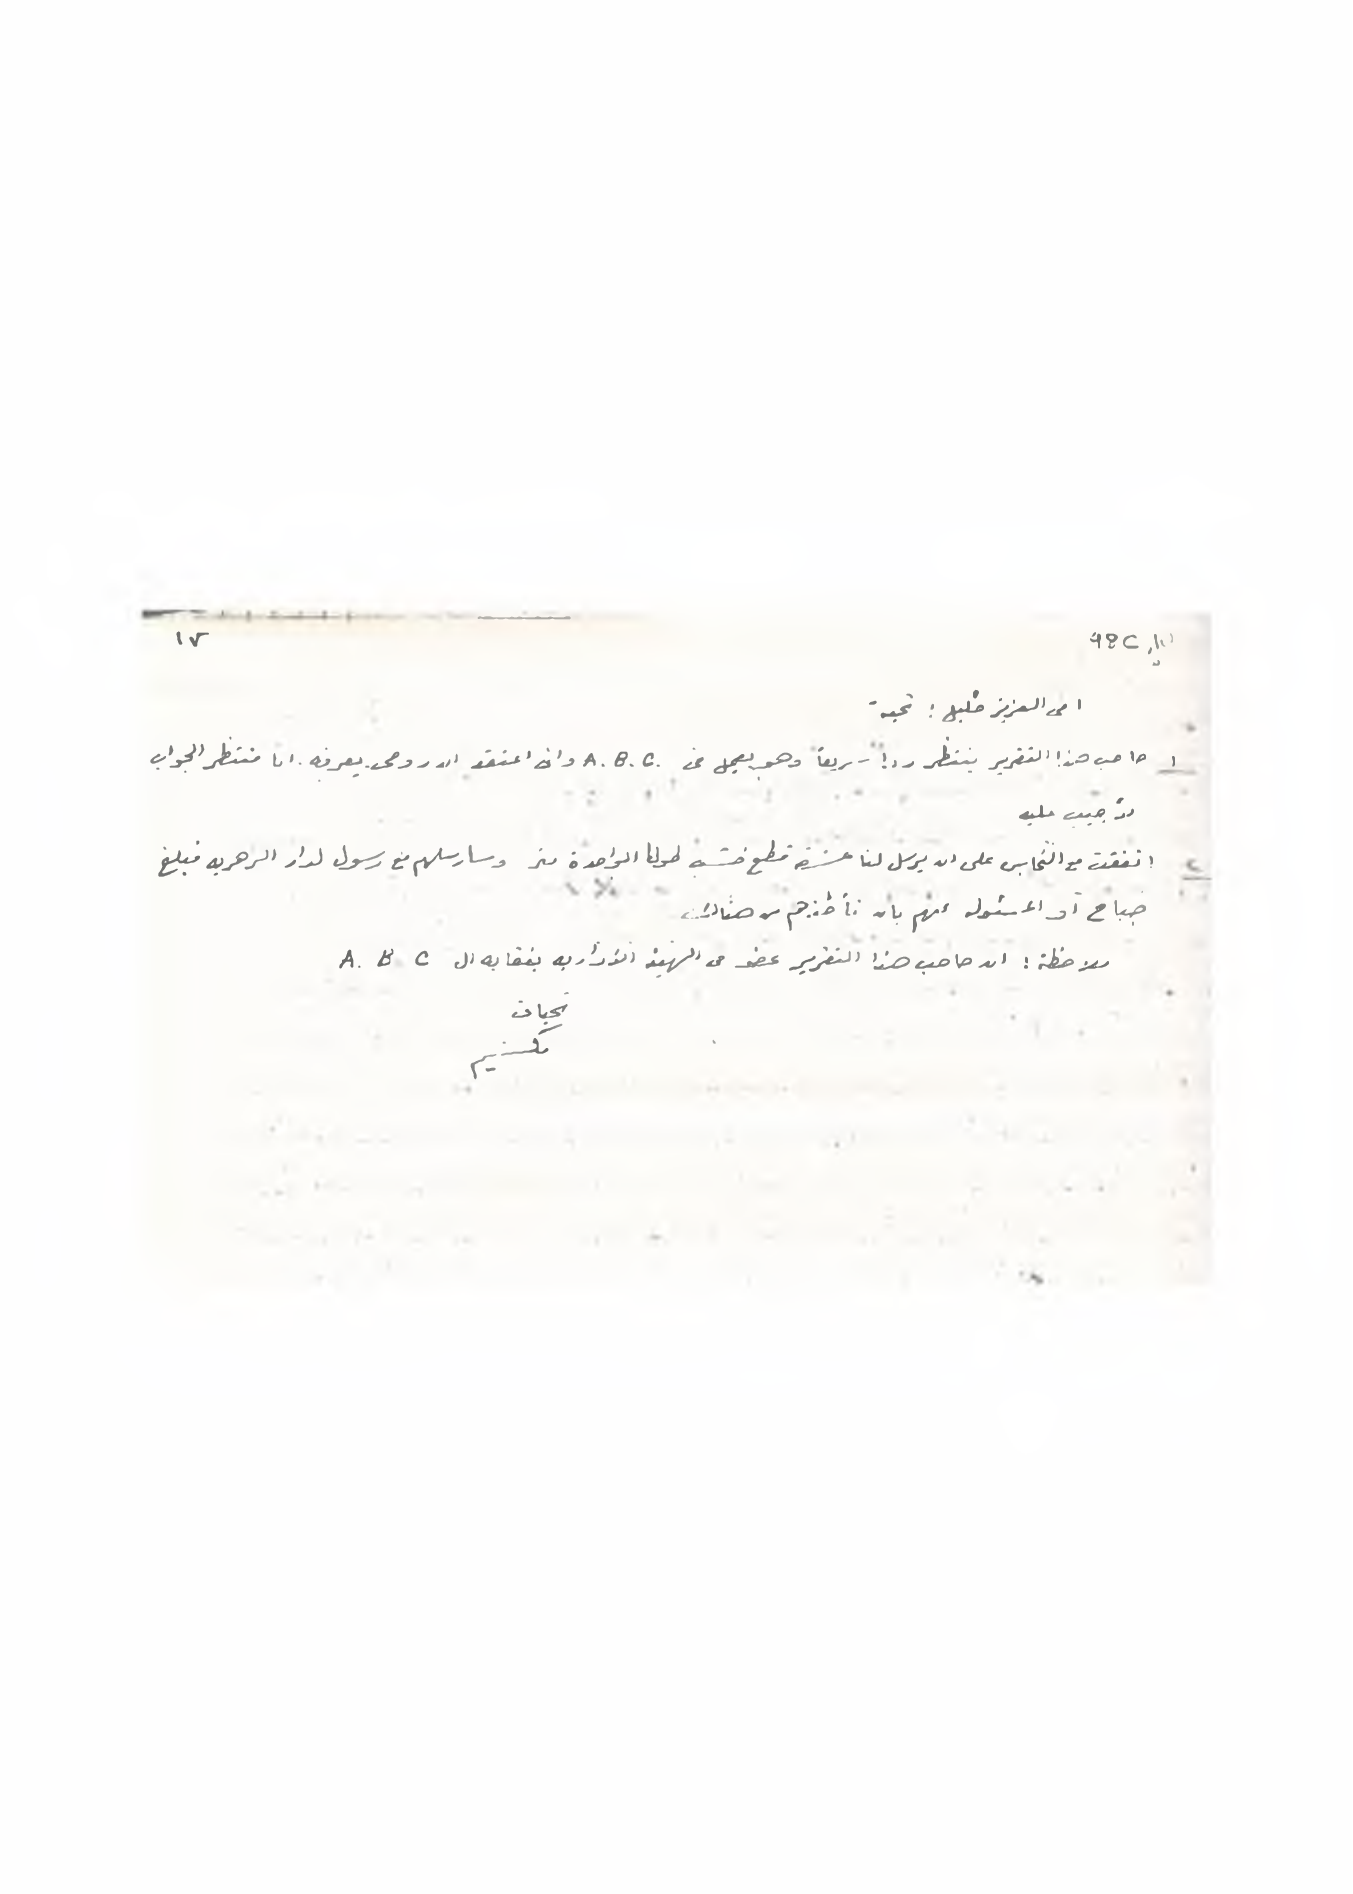 ١٧
اخي العزيز خليل : تحية
١ صاحب هذا التقرير ينتظر رداً سريعاً وهو يعمل في A. B. C. واني اعتقد ان روحي يعرفه. انا منتظر الجواب
لأجيب عليه
٢ اتفقت مع النحاس على ان يرسل لنا عشرة قطع خشب طول الواحدة متر وسارسلهم مع رسول لدار الزهريه فبلغ
صباح أو المسئول عنهم بأن تأخذهم من هناك
ملاحظة : ان صاحب هذا التقرير عضو في الهيئة الادارية بنقابة ال A. B C
تحياتي